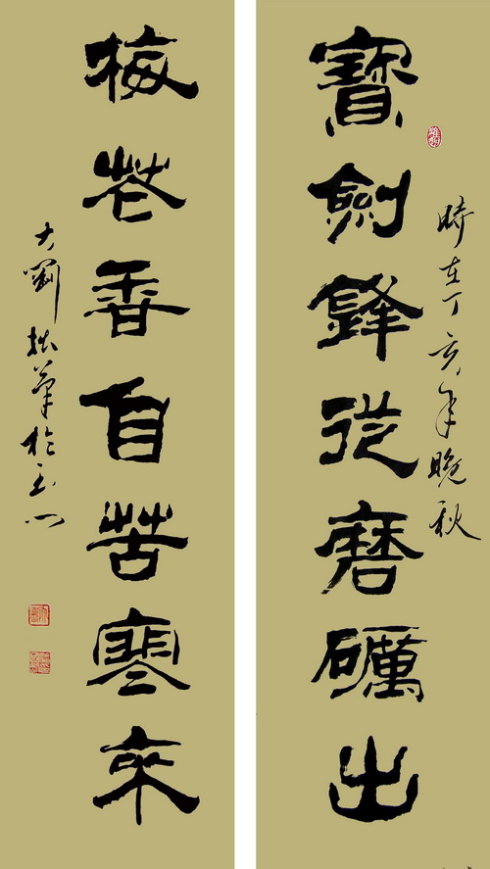 寶劍鋒從磨礪出
時在丁亥年晚秋
梅花香自苦寒來
大劉拙筆於玉門